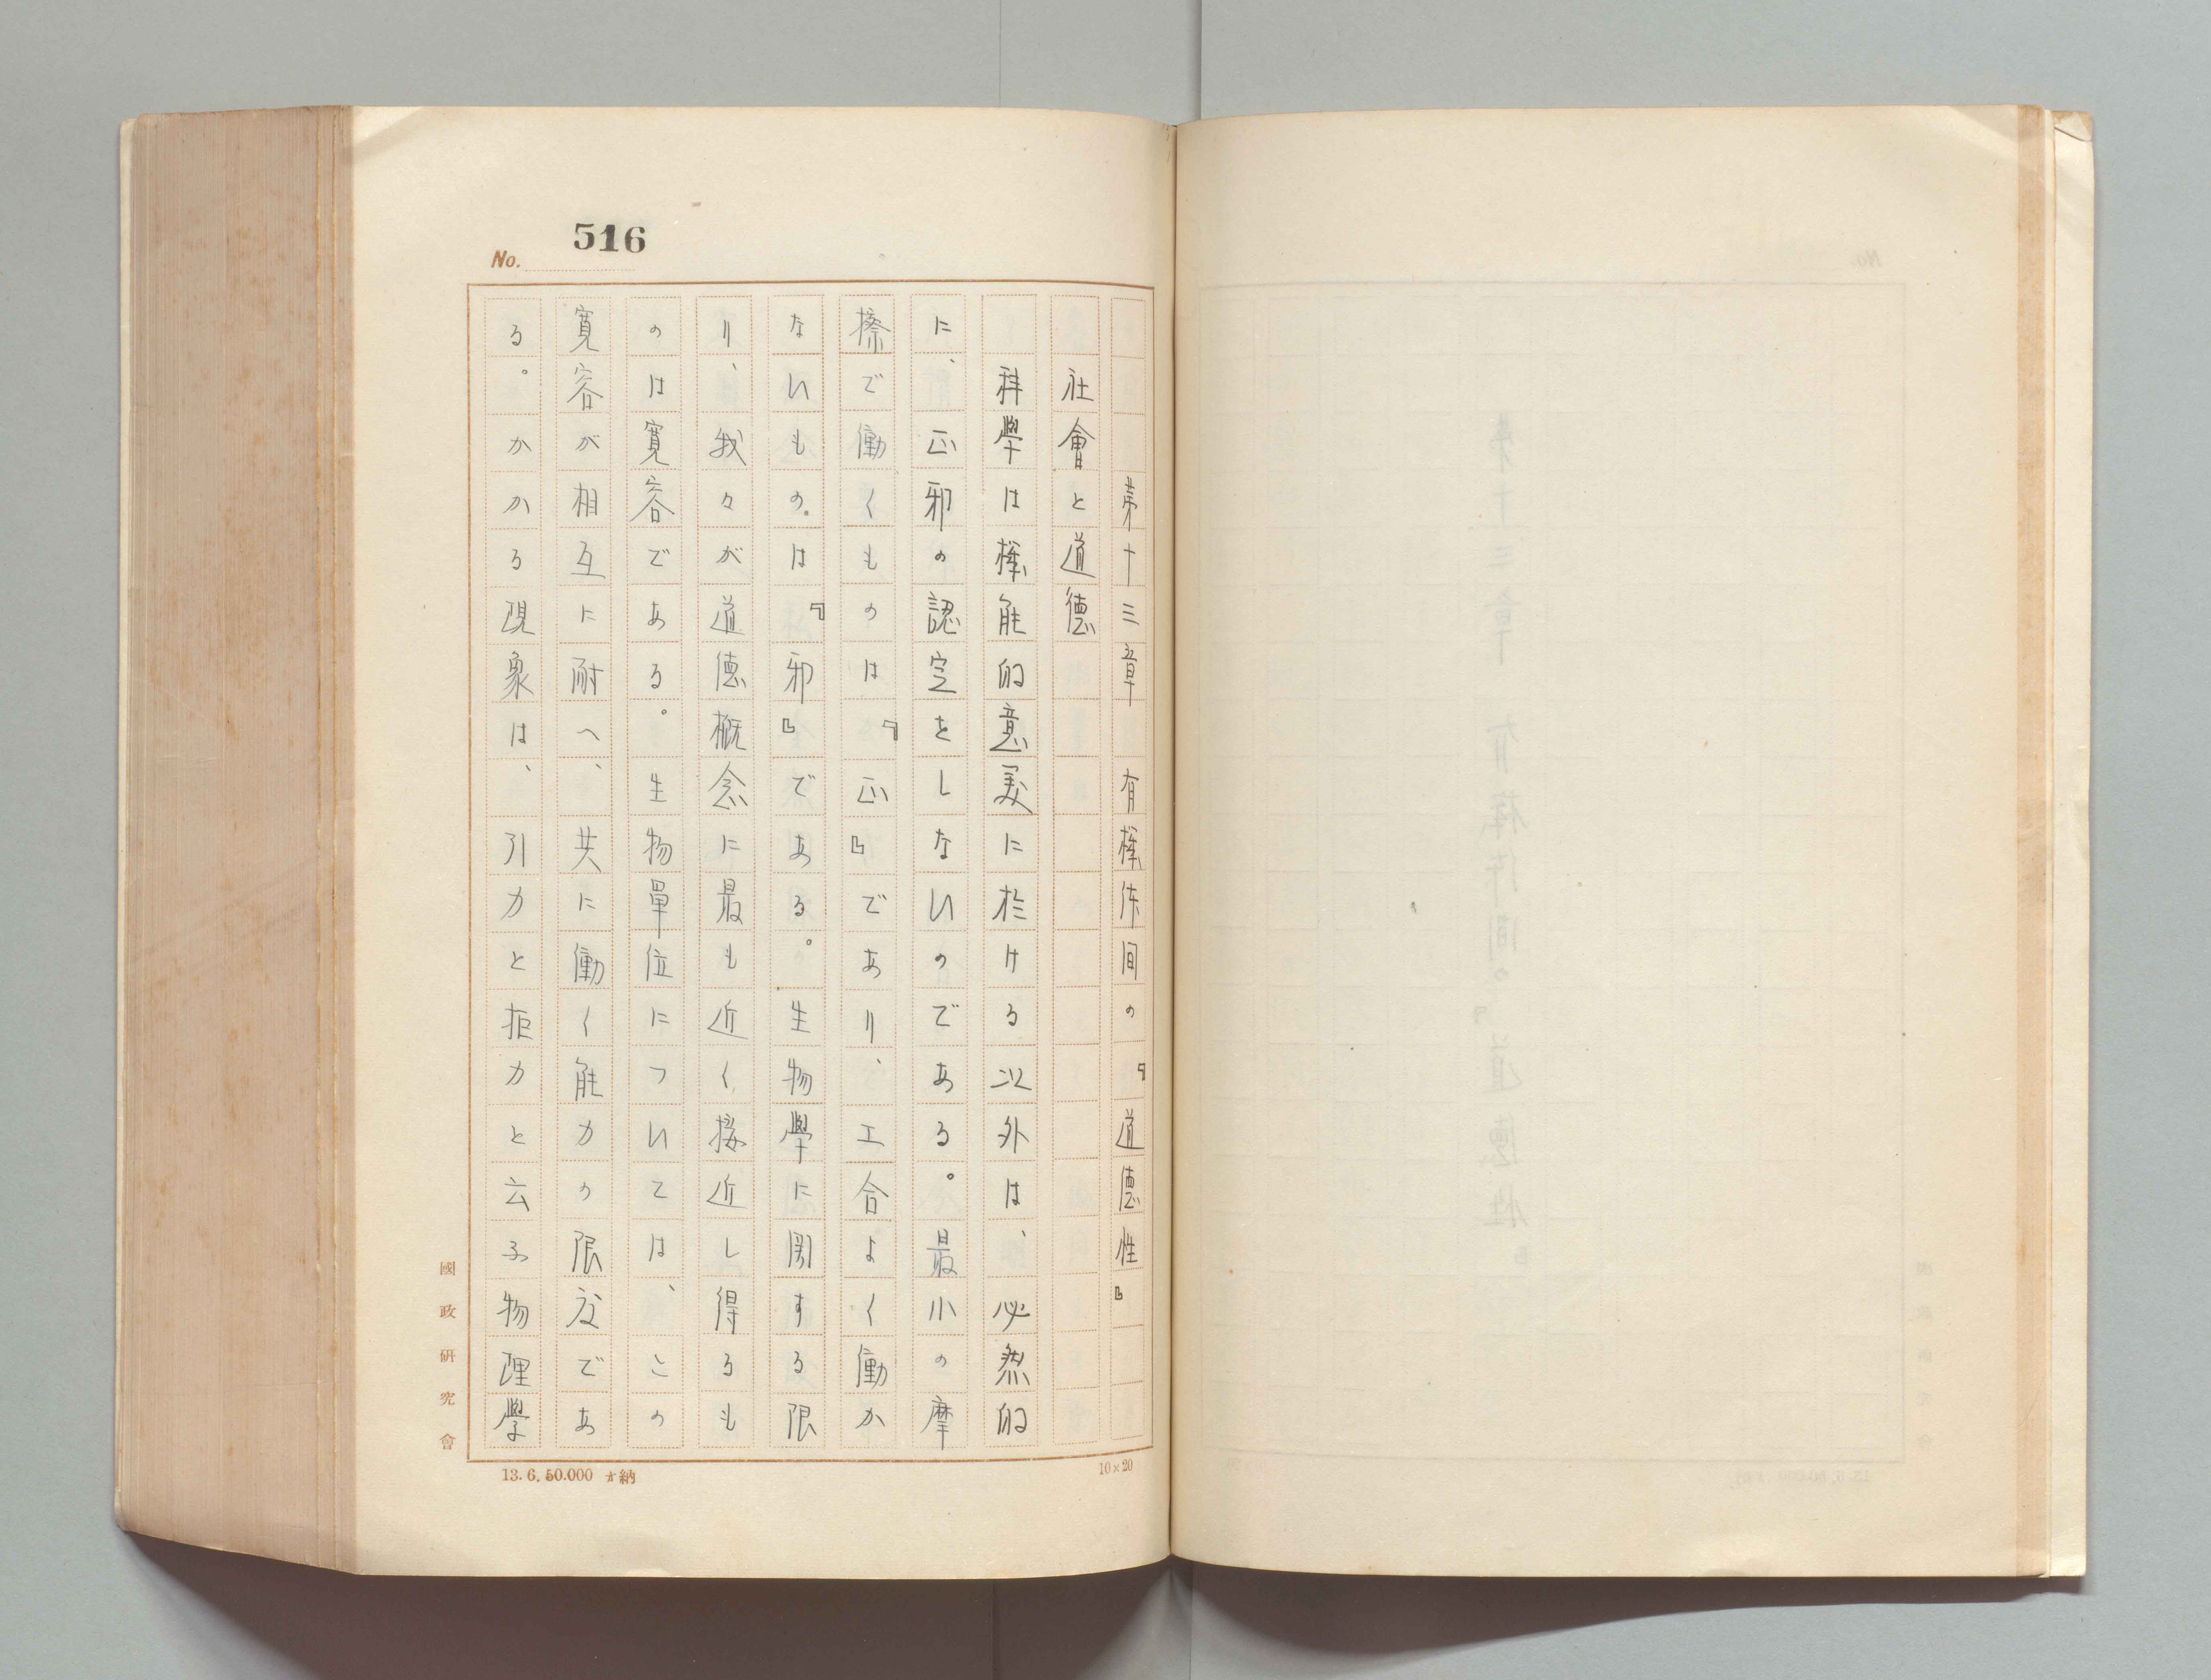 516
No.
第十三章 有機体間の『道徳性』
社會と道徳
科學は機能的意義に於ける以外は、必然的
に、正邪の認定をしないのである。最小の摩
擦で働くものは『正』であり、工合よく働か
ないものは『邪』である。生物學に関する限
り、我々が道徳概念に最も近く接近し得るも
のは寛容である。生物單位については、この
寛容が相互に耐へ、共に働く能力の限度であ
る。かかる現象は、引力と拒力と云ふ物理學
國政研究會
13.6.50.000 納
10×20